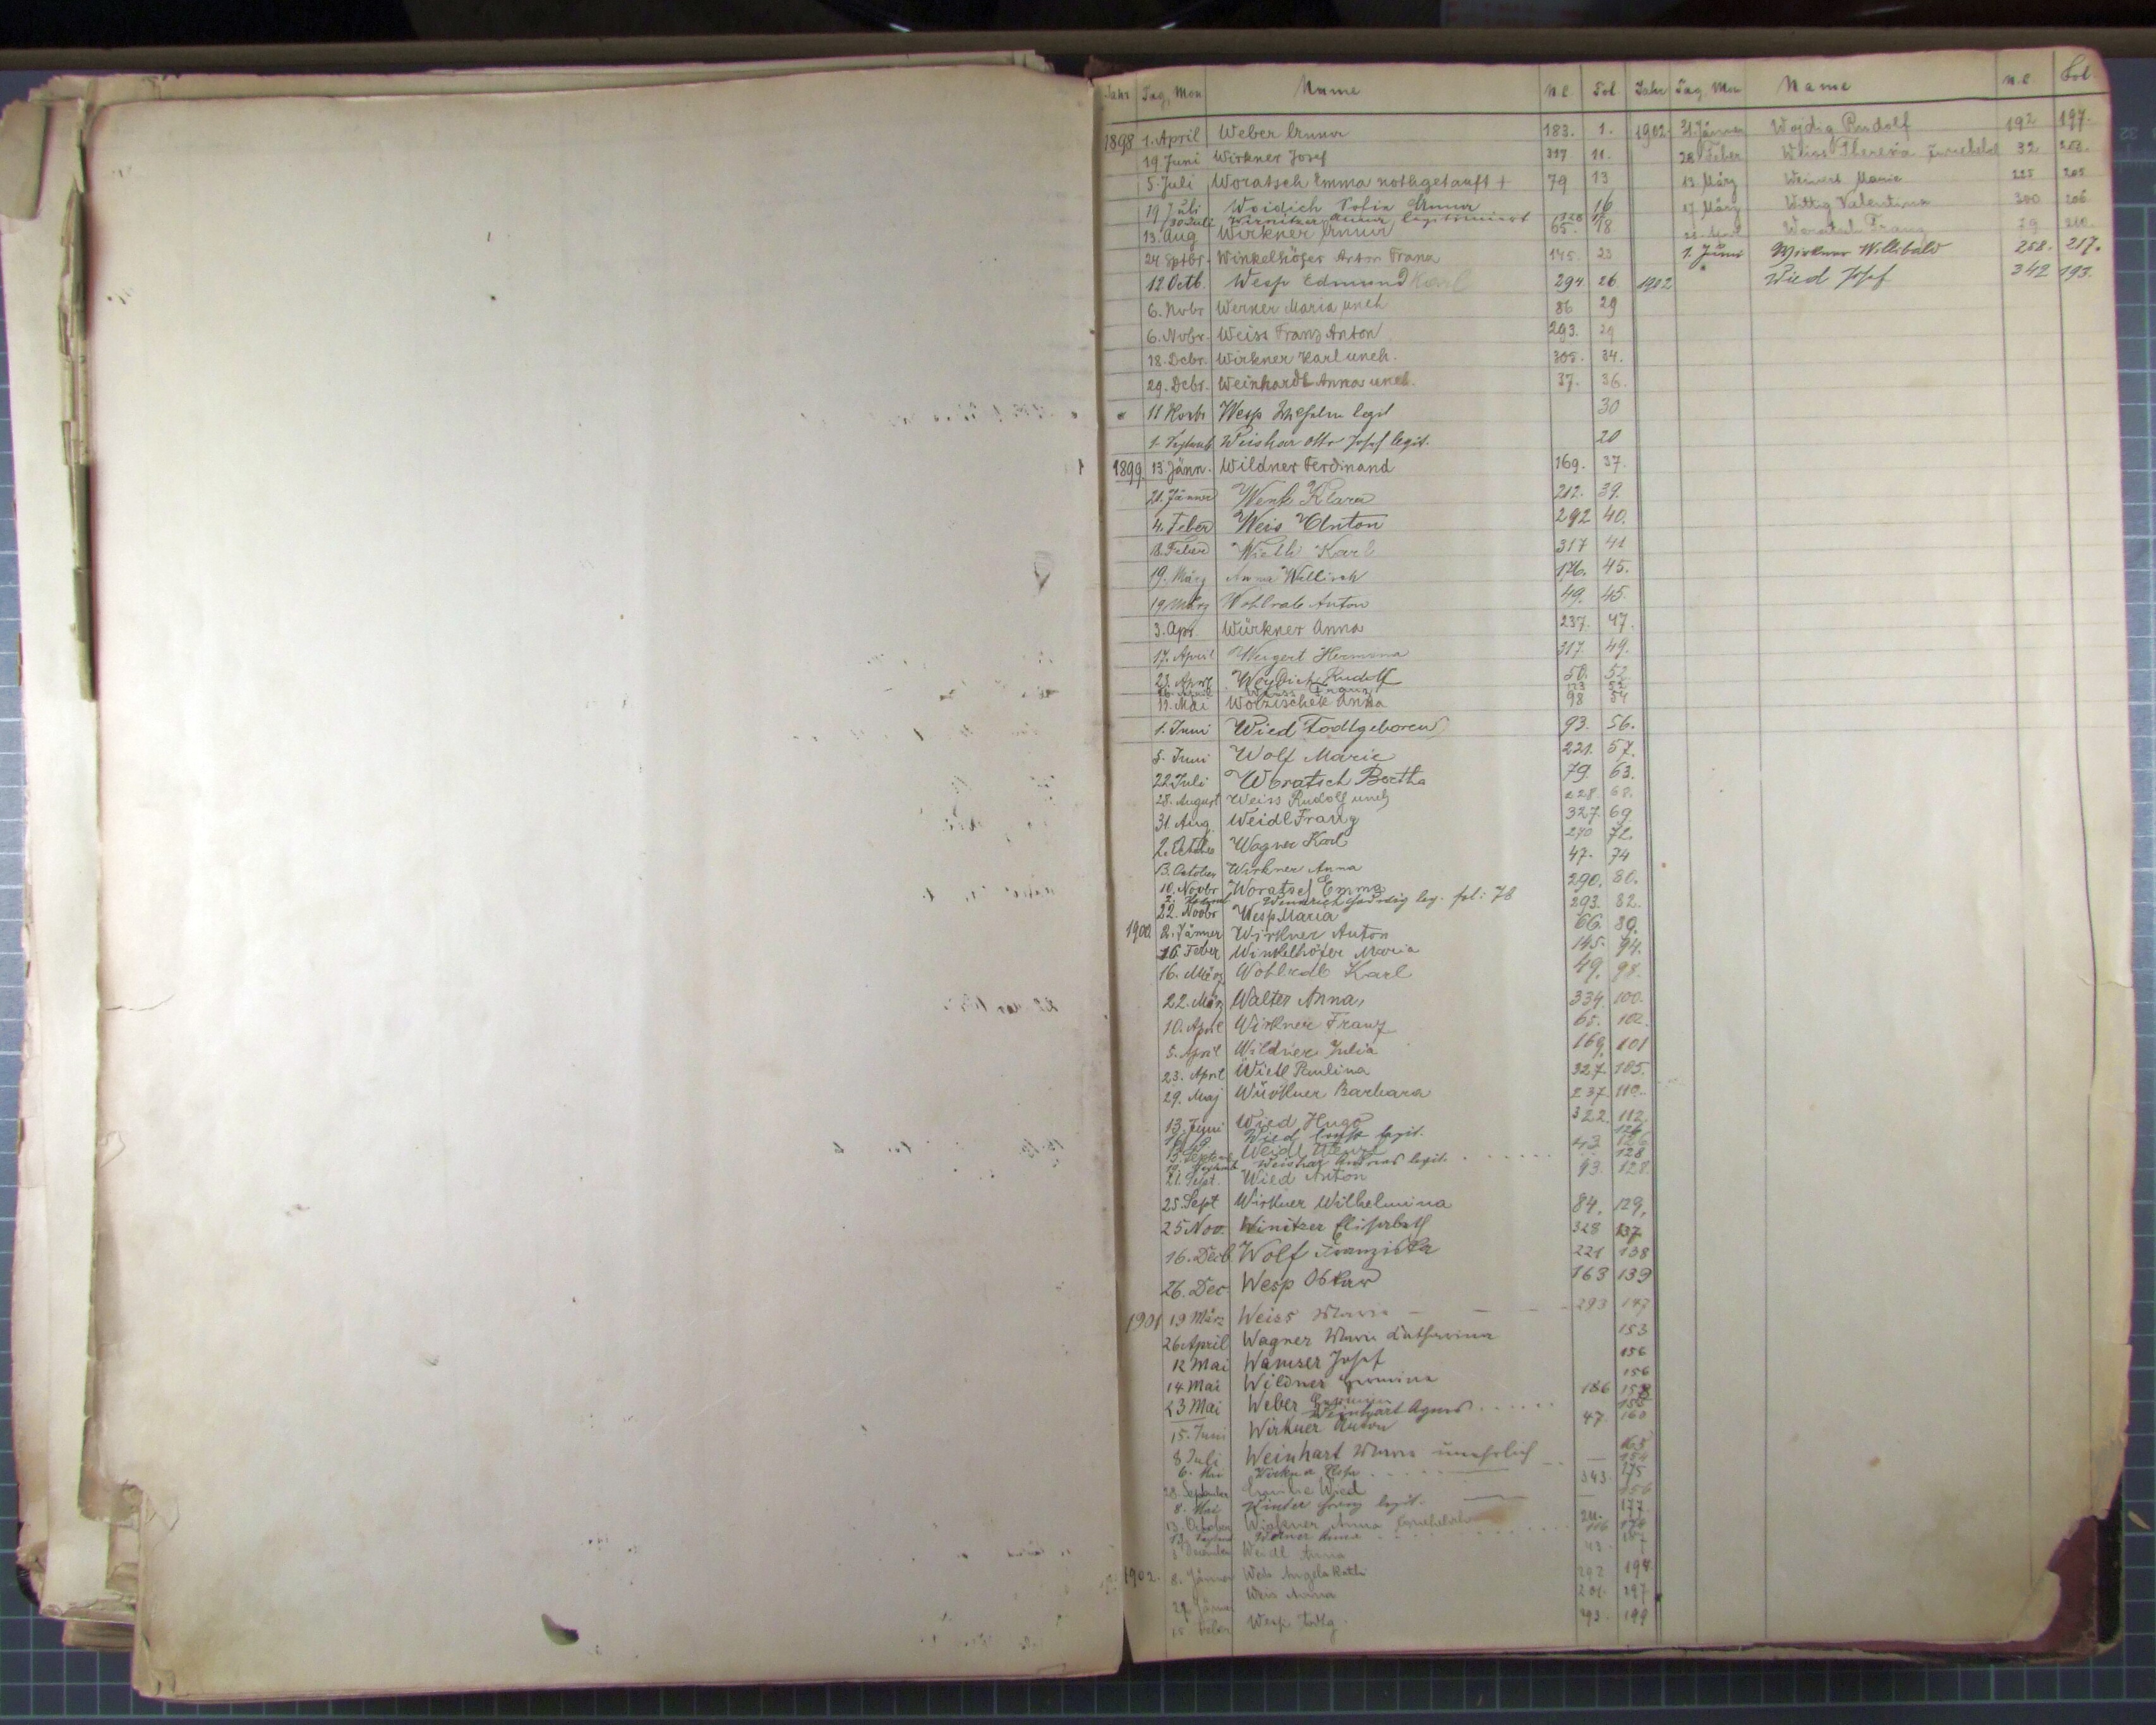 Jahr Tag, Mon Name N.C. Fol.
1898 1. April Weber Anna 183. 1.
19 Juni Wirkner Josef 317 11.
5. Juli Woratsch Emma nothgetauft + 79 13
19 Juli Woidich Sofia Anna 16
30 Juli Anna legitimiert
13. Aug Wirkner Anna 65. 18
24 Sptbr. Winkelhöfer Anton Franz 145. 23
12 Octb. Wesp Edmund Karl 294 26
6. Nvbr Werner Maria uneh 86 29
6. Nvbr. Weiss Franz Anton 293. 29
18. Dcbr. Wirkner Karl uneh. 305. 34.
29. Dcbr. Weinhardt Anna uneh. 37. 36.
11 Novbr Wesp legit 30
1. Weishar Otto Josef legit. 20
1899. 15. Jänn. Wildner Ferdinand 169. 37.
21. Jänner Wenk Klara 212. 39.
4. Feber Weis Anton 292 40.
Feber Karl 317 41
19. März Anna Wellisch 176. 45.
19 März Wohlrab Anton 49. 45.
3. Apr. Würkner Anna 237. 47.
17. April Weigert Hermina 317. 49.
23. April Rudolf 50. 52
Franz
11. Mai Wolzischek Anna 98 54
1. Juni Wied Todtgeboren 93. 56.
5. Juni Wolf Marie 221. 57.
22 Juli Woratsch Bertha 79. 63.
28. August Weiss Rudolf uneh 228. 68.
31. Aug. Weidl Franz 327. 69.
2. October Wagner Karl 240 72.
13. October Wirkner Anna 47. 74
10. Novbr Woratsch Emma 290. 80.
leg. fol: 78
22. Novbr Wesp Maria 293. 82.
1900 2. Jänner Wirkner Anton 66. 89.
16. Feber Winkelhöfer Maria 145. 94.
16. März Wohlrab Karl 49. 98.
22. März Walter Anna, 334. 100.
10. April Wirkner Franz 65. 102.
5. April Wildner Julia 169. 101
23. April Wietl Paulina 327. 105.
29. Maj Würkner Barbara 237. 110.
13. Juni Wied Hugo 322. 112.
Wied legit. 126
15. Septemb. Weidl 43. 126
Weishar Andreas legit. 128
21. Sept. Wied Anton 93. 128.
25. Sept Wirkner Wilhelmina 84. 129.
25 Nov. Winitzer Elisabeth 328 137
16. Decb. Wolf Franziska 221 138
26. Dec Wesp Oskar 163 139
1901 19 März Weiss Maria 293 147
26 April Wagner Maria Katharina 153
12 Mai Wamser Josef 156
14 Mai Wildner Hermina 156
23 Mai Weber 186 158
Weinhart Agnes
15. Juni Wirkner Anton 47. 160
8 Juli Weinhart Maria unehelich
6. Mai
28. September Emilie Wied 343. 175
8. Mai legit.
13. October Wirkner Anna 177
Werner Anna
December Weidl Anna 43. 187
1902. 8. Jänner Weis Angela Kath. 292 194
29. Jänner Weis Anna 201. 197
15 Feber Wesp todtg. 293. 199
Jahr Tag Mon Name N.C. Fol.
1902 21. Jänner Wojdig Rudolf 192 197.
28 Feber Weiss Theresia 32 203.
13. März Weinert Marie 225 205
17. März Wittig Valentina 300 206
Woratsch Franz 79 210.
1. Juni Wirkner Willibald 258. 217.
1902 Wied Josef 342 193.